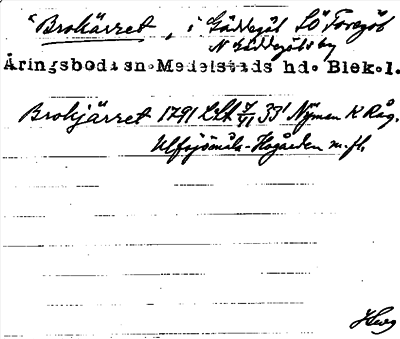 "Brokärret, i Gäddegöl SÖ Foregöl
N Gäddegölsby
Äringsbodasn. Medelstads hd. Blek.l.
Brokjärret 1791 Lilt 7/VI 33' Nyman K Råg.
Ulfsjömåla - Hogården m.fl.